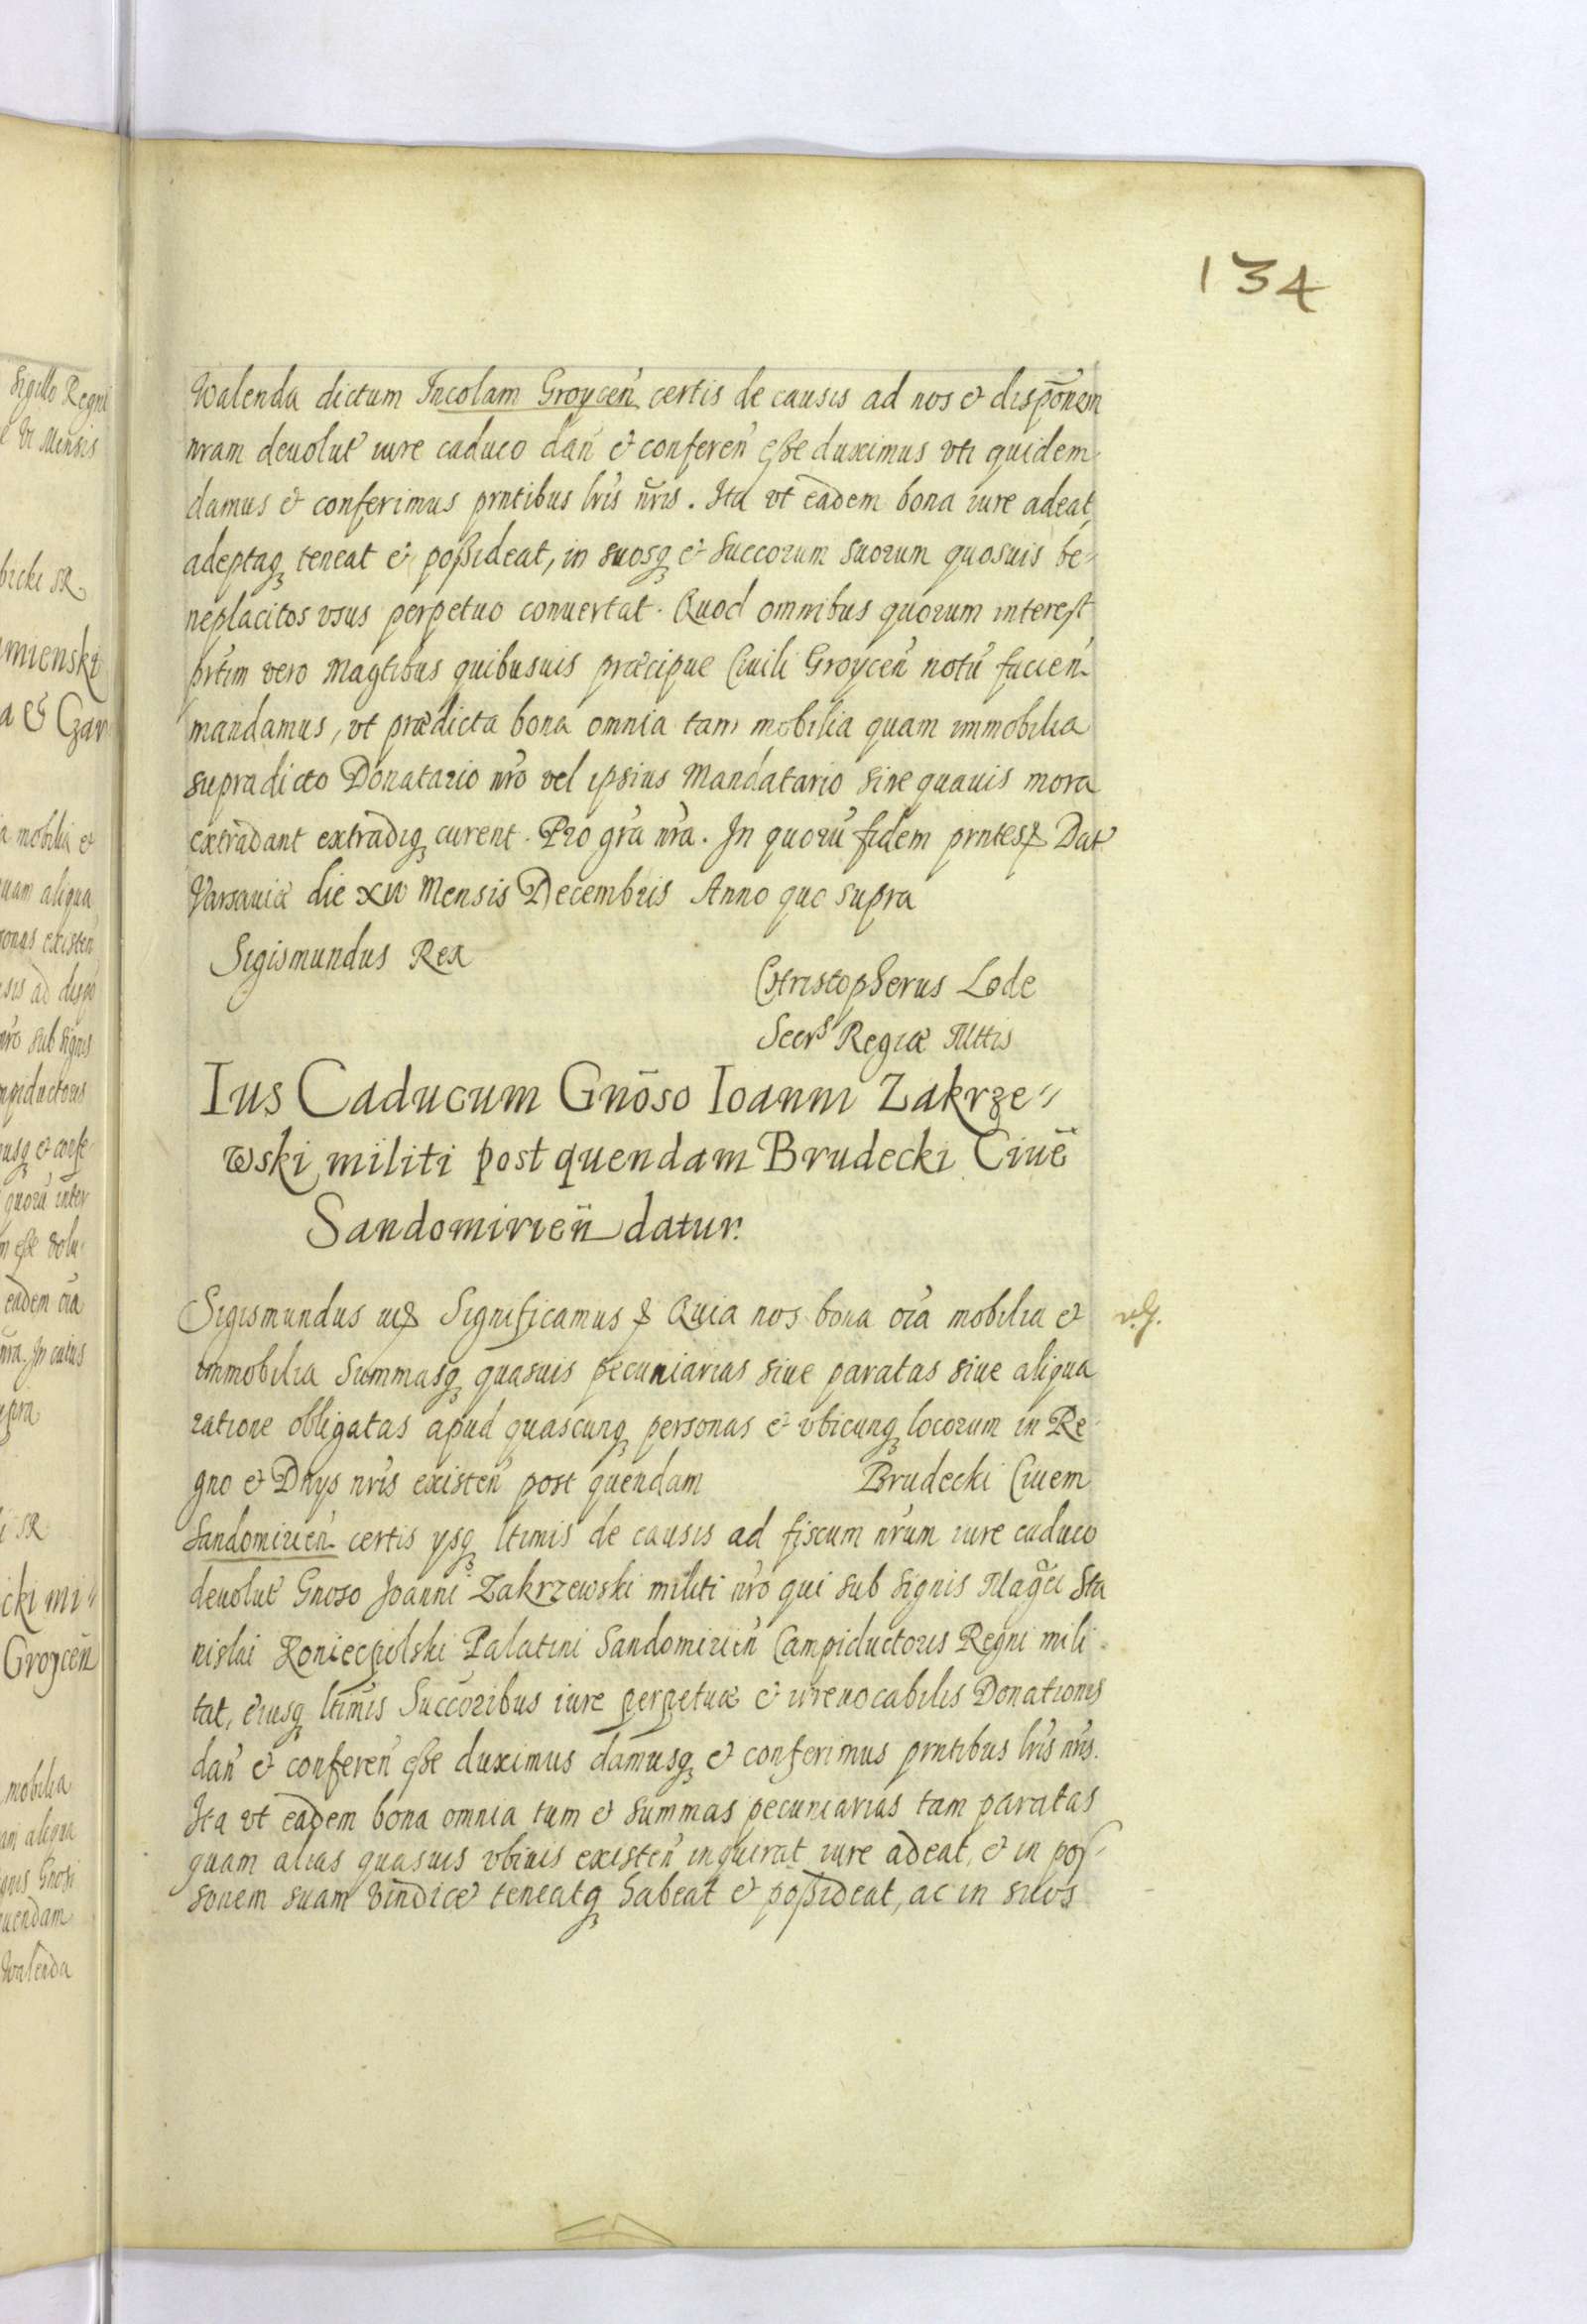 134
Walenda dictum Incolam Groycen̄ certis de causis ad nos et dispōnem
nram deuolut iure caduco dan̄ et conferen̄ eſſe duximus vti quidem
damus et conferimus prntibus lris nr̄is. Ita vt eadem bona iure adeat,
adeptaqꝫ teneat et poßideat, in suosqꝫ et Succorum suorum quosuis be-
neplacitos vsus perpetuo conuertat. Quod omnibus quorum interest
prtim vero Magtibus quibusuis præcipue Ciuili Groycen̄ notū facien̄
mandamus, vt prædicta bona omnia tam mobilia quam immobilia
supradicto Donatario nro vel ipsius Mandatario sine quauis mora
extradant extradiqꝫ curent. Pro gra nra. In quorū fidem prntes ꝛc Dat
Varsauiæ die Mensis Decembris Anno quo supra
Sigismundus Rex
Christopherus Lode
Secrs Regiæ Mttis
Ius Caducum Gnōso Ioanni Zakrze=
wski militi post quendam Brudecki Ciuē
Sandomirien̄ datur.
Sigismundus ꝛc Significamus ꝛc Quia nos bona oīa mobilia et
immobilia Summasqꝫ quasuis pecuniarias siue paratas siue aliqua
ratione obligatas apud quascunqꝫ personas et vbicunqꝫ locorum in Re-
gno et Dnijs nris existen̄ post quendam Brudecki Ciuem
Sandomirien̄ certis ysqꝫ ltimis de causis ad fiscum nrum iure caduco
deuolut Gnoso Joanni Zakrzewski militi nro qui sub signis Magci Sta
nislai Koniecpolski Palatini Sandomirien̄ Campiductoris Regni mili-
tat, eiusqꝫ ltimis Succoribus iure perpetuæ et irreuocabilis Donationis
dan̄ et conferen̄ eſſe duximus damusqꝫ et conferimus prntibus lris nris.
Ita vt eadem bona omnia tum et summas pecuniarias tam paratas
quam alias quasuis vbiuis existen̄ inquirat iure adeat, et in pos-
sonem suam vindicet teneatqꝫ habeat et poßideat, ac in suos